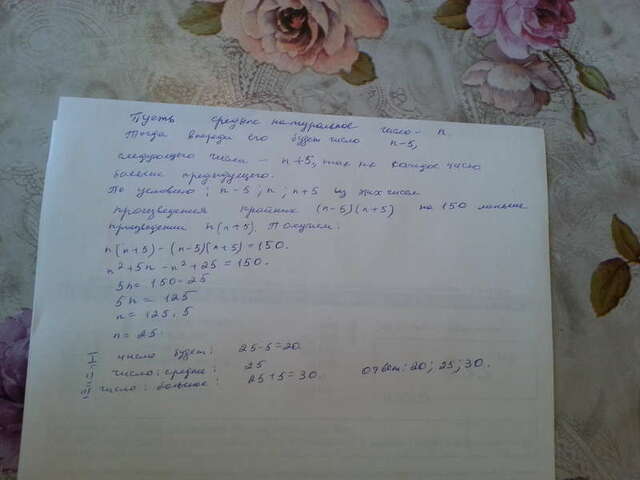 Пусть среднее натуральное число - n.
Тогда впереди его будет число n-5,
следующего числа - n+5, так как каждое число
больше предыдущего.
По условию: n-5; n; n+5 из них числа
произведения крайних (n-5)(n+5) на 150 меньше
произведении n(n+5). Получим:
n(n+5)-(n-5)(n+5)=150.
n²+5n-n²+25=150.
5n=150-25
5n=125
n=125:5
n=25.
I число будет: 25-5=20.
II число: средне: 25
III число: большое: 25+5=30.
Ответ: 20; 25; 30.